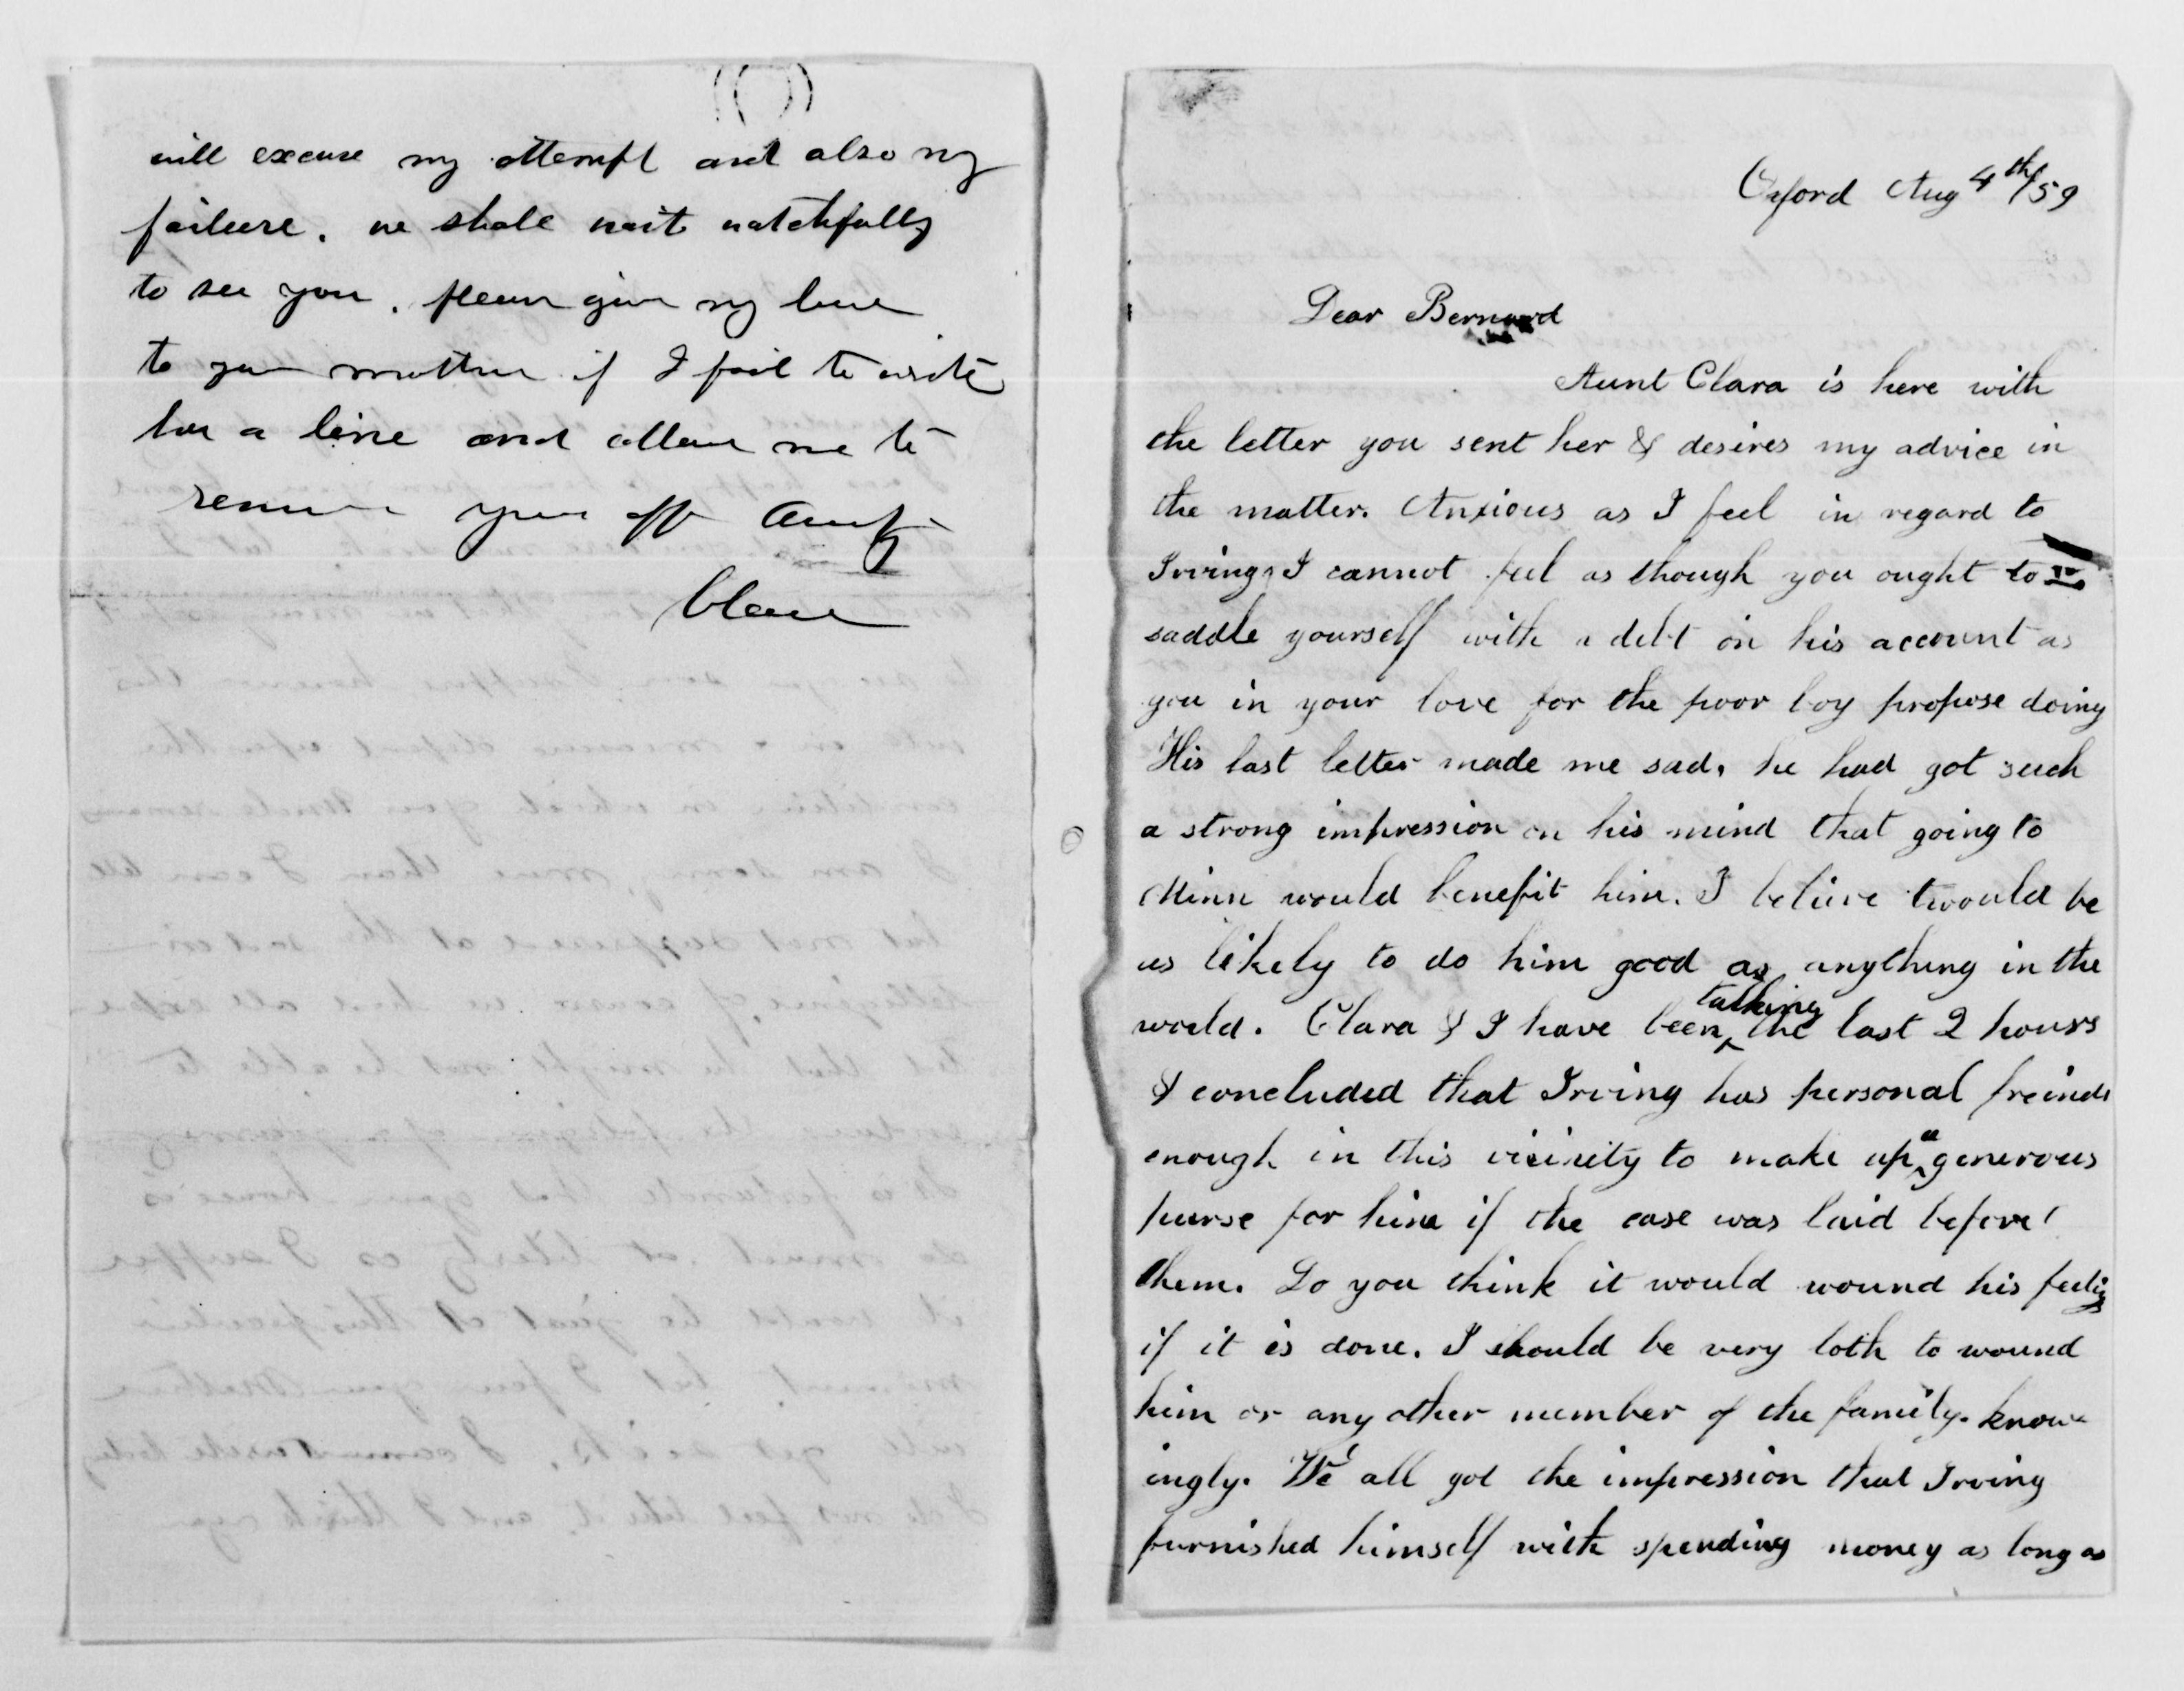 will excuse my attempt and also my
failure. we shall wait watchfully
to see you. please give my love
to your mother if I fail to write
her a line and allow me to
remain your aff Aunt
Clara
Oxford Aug 4th/59
Dear Bernard
Aunt Clara is here with
the letter you sent her & desires my advice in
the matter. Anxious as I feel in regard to
Irving, I cannot feel as though you ought to
saddle yourself with a debt on his account as
you in your love for the poor boy propose doing
His last letter made me sad, he had got such
a strong impression on his mind that going to
Minn would benefit him. I beleive twould be
as likely to do him good as anything in the
world. Clara & I have been talking the last 2 hours
& concluded that Irving has personal freinds
enough in this vicinity to make up a generous
purse for him if the case was laid before
them. Do you think it would wound his feelings
if it is done. I should be very loth to wound
him or any other member of the family. know-
ingly. We all got the impression that Irving
furnished himself with spending money as long as